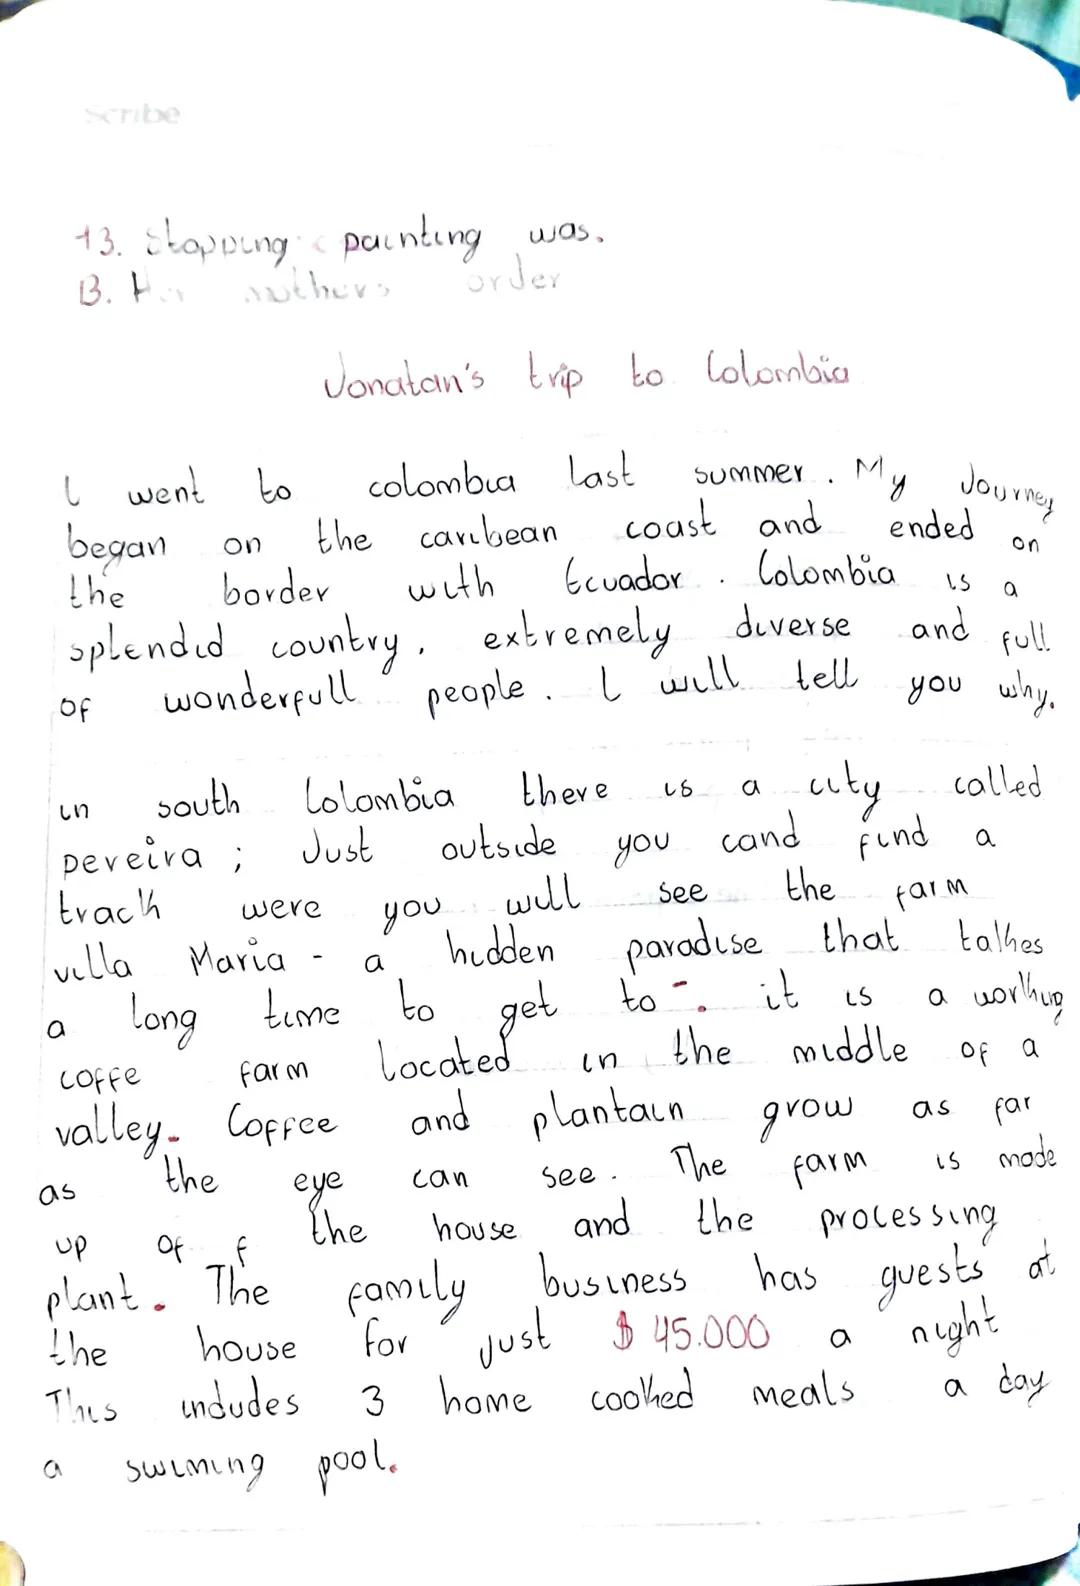 Scribe
13. Stopping painting was.
B. Her mothers order
Jonatan's trip to Colombia
I went to colombia last summer. My Journey
began on the caribean coast and ended on
the border with Ecuador. Colombia is a
splendid country, extremely diverse and full
of wonderfull people. I will tell you why.
in south Colombia there is a city called
pereira; Just outside you cand find a
track were you will see the farm
villa Maria - a hidden paradise that talkes
a long time to get to -. it is a working
coffe farm located in the middle of a
valley. Coffee and plantain grow as far
as the eye can see. The farm is made
up of f the house and the processing
plant. The family business has guests at
the house for just $ 45.000 a night
This indudes 3 home cooked meals a day
a swiming pool.